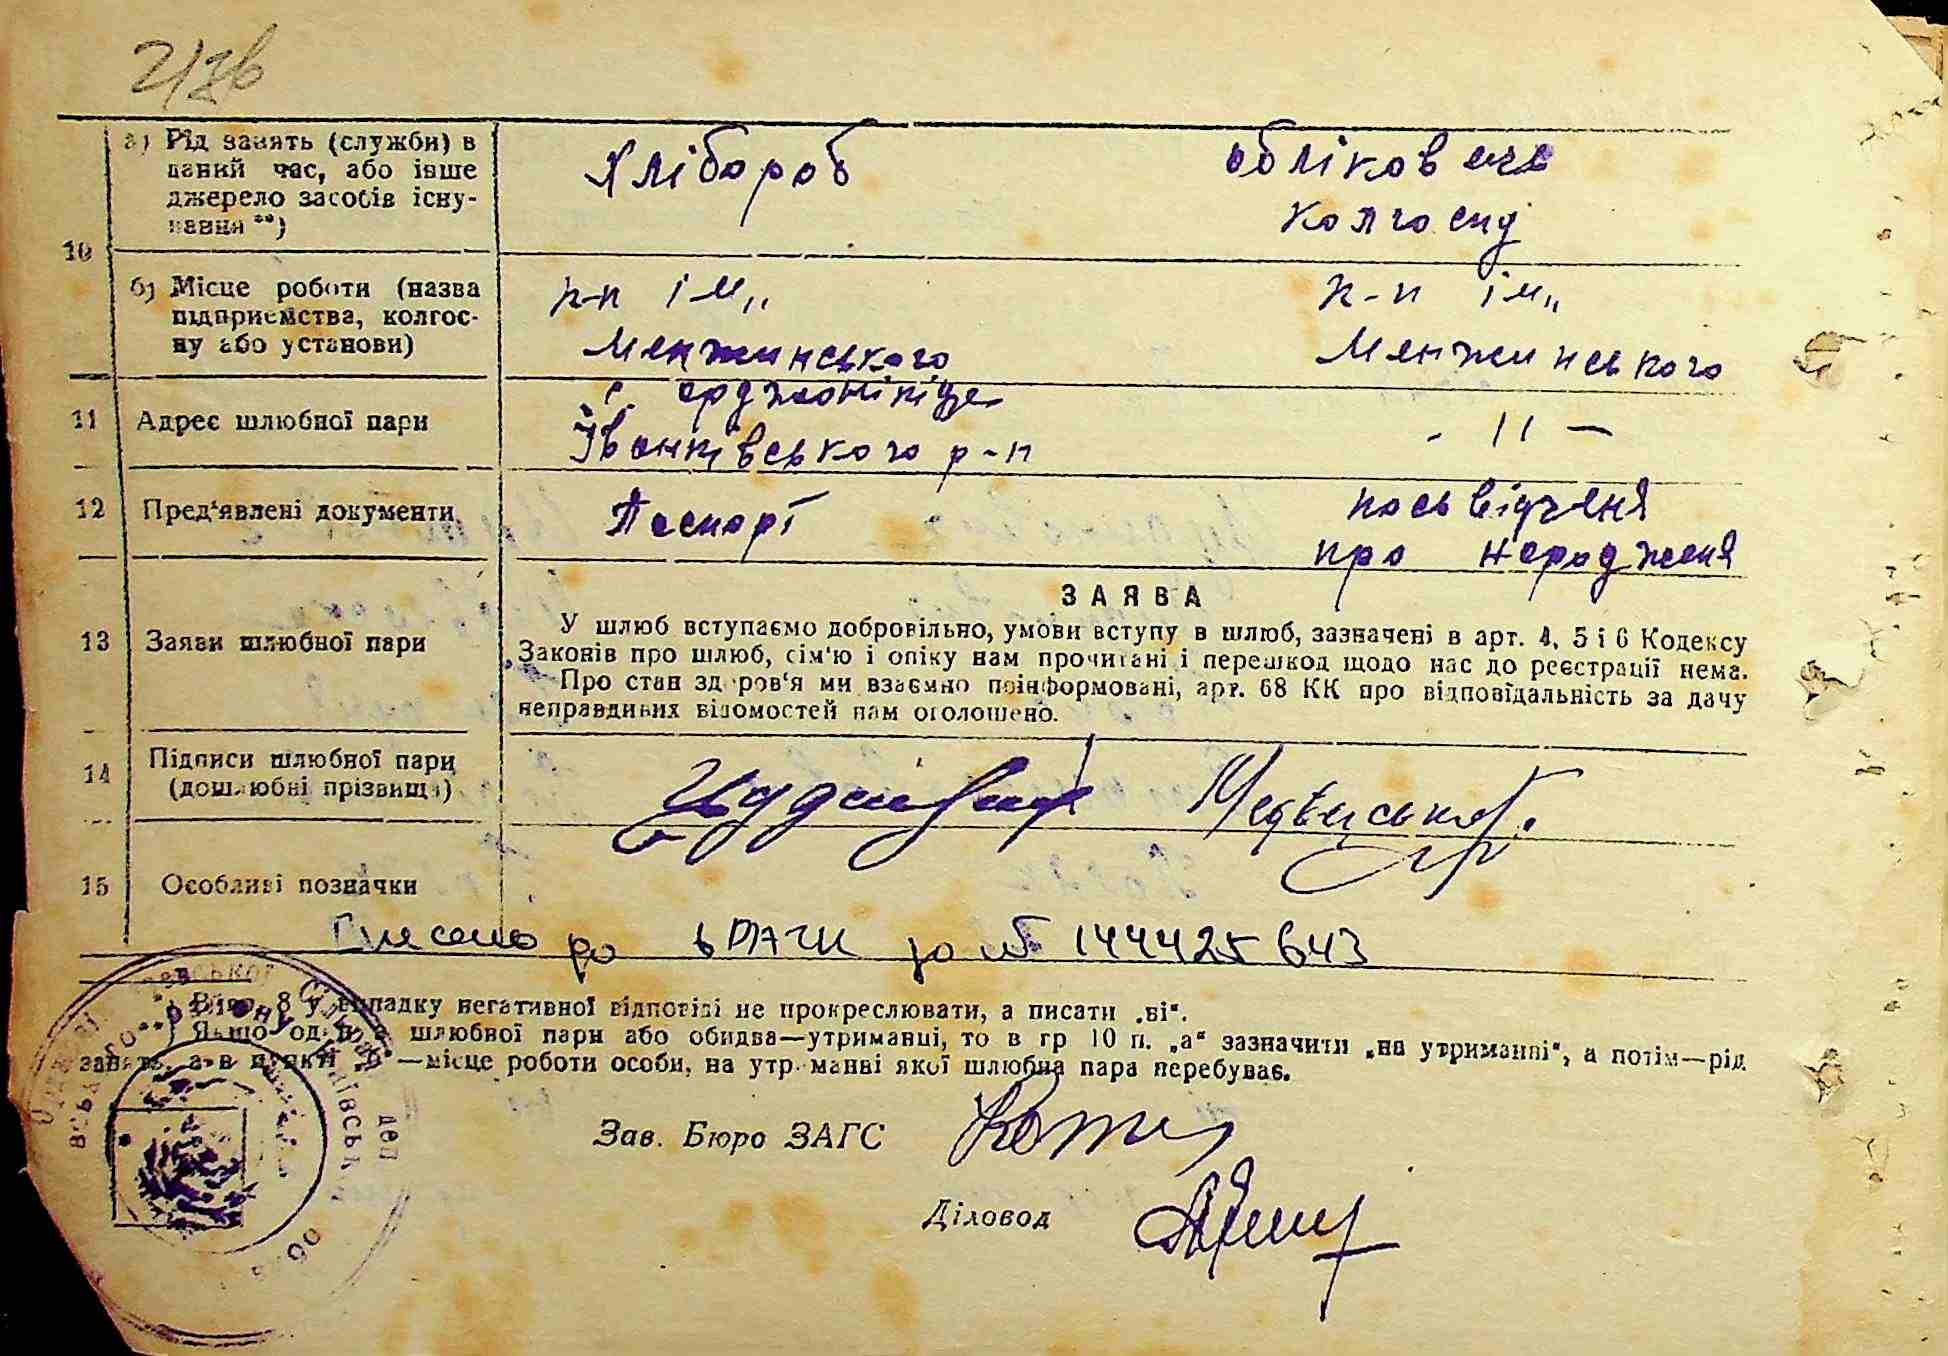 10
а) Рід занять (служби) в
даний час, або інше
джерело засобів існу-
вання **)
Хлібороб
обліковець
колгоспу
б) Місце роботи (назва
підприємства, колгос-
пу або установи)
к-п ім.,
Менжинського
к-п ім.,
Менжинського
11 Адрес шлюбної пари
с. Орджонікідзе
Іванківського р-н
- 11 -
12 Пред'явлені документи
Паспорт
посьвідченя
про народженя
13 Заяви шлюбної пари
ЗАЯВА
У шлюб вступаємо добровільно, умови вступу в шлюб, зазначені в арт. 4, 5 і 6 Кодексу
Законів про шлюб, сім'ю і опіку нам прочитані і перешкод щодо нас до реєстрації нема.
Про стан здоров'я ми взаємно поінформовані, арт. 68 КК про відповідальність за дачу
неправдивих відомостей нам оголошено.
14 Підписи шлюбної пари
(дошлюбні прізвища)
15 Особливі позначки
Внесено до ДРАЦС за № 144425643
*) В гр. 8 у випадку негативної відповіді не прокреслювати, а писати „ні“.
**) Якщо один з шлюбної пари або обидва—утриманці, то в гр 10 п. „а“ зазначити „на утриманні“, а потім—рід
занять, а в пункті „б“—місце роботи особи, на утриманні якої шлюбна пара перебуває.
Зав. Бюро ЗАГС
Діловод